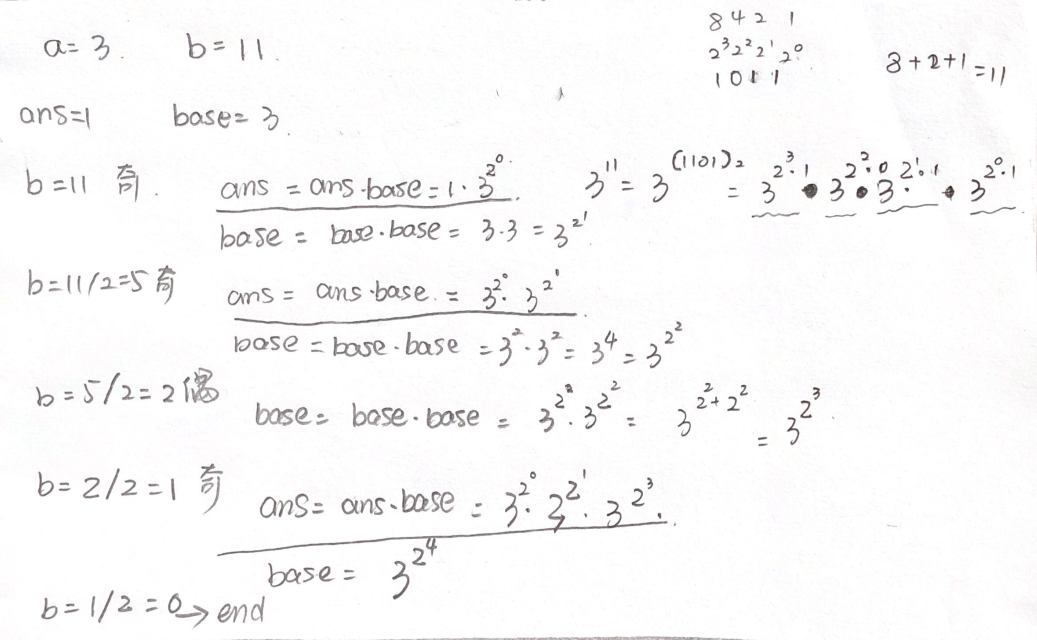 a=3. b=11.
8 4 2 1
2³ 2² 2¹ 2⁰.
1 0 1 1
8+2+1=11
ans=1 base=3.
b=11 奇. ans = ans·base=1·3^{2^0}.
3^{11} = 3^{(1101)₂} = 3^{2^3·1} • 3^{2^2·0} • 3^{2^1·1} • 3^{2^0·1}
base = base·base = 3·3 = 3^{2^1}.
b=11/2=5 奇 ans = ans·base. = 3^{2^0}· 3^{2^1}
base = base·base = 3²·3² = 3⁴ = 3^{2^2}
b=5/2=2 偶 base= base·base = 3^{2^2}·3^{2^2} = 3^{2^2+2^2} = 3^{2^3}
b=2/2=1 奇 ans= ans·base = 3^{2^0}· 3^{2^1}· 3^{2^3}.
base = 3^{2^4}
b=1/2=0→end